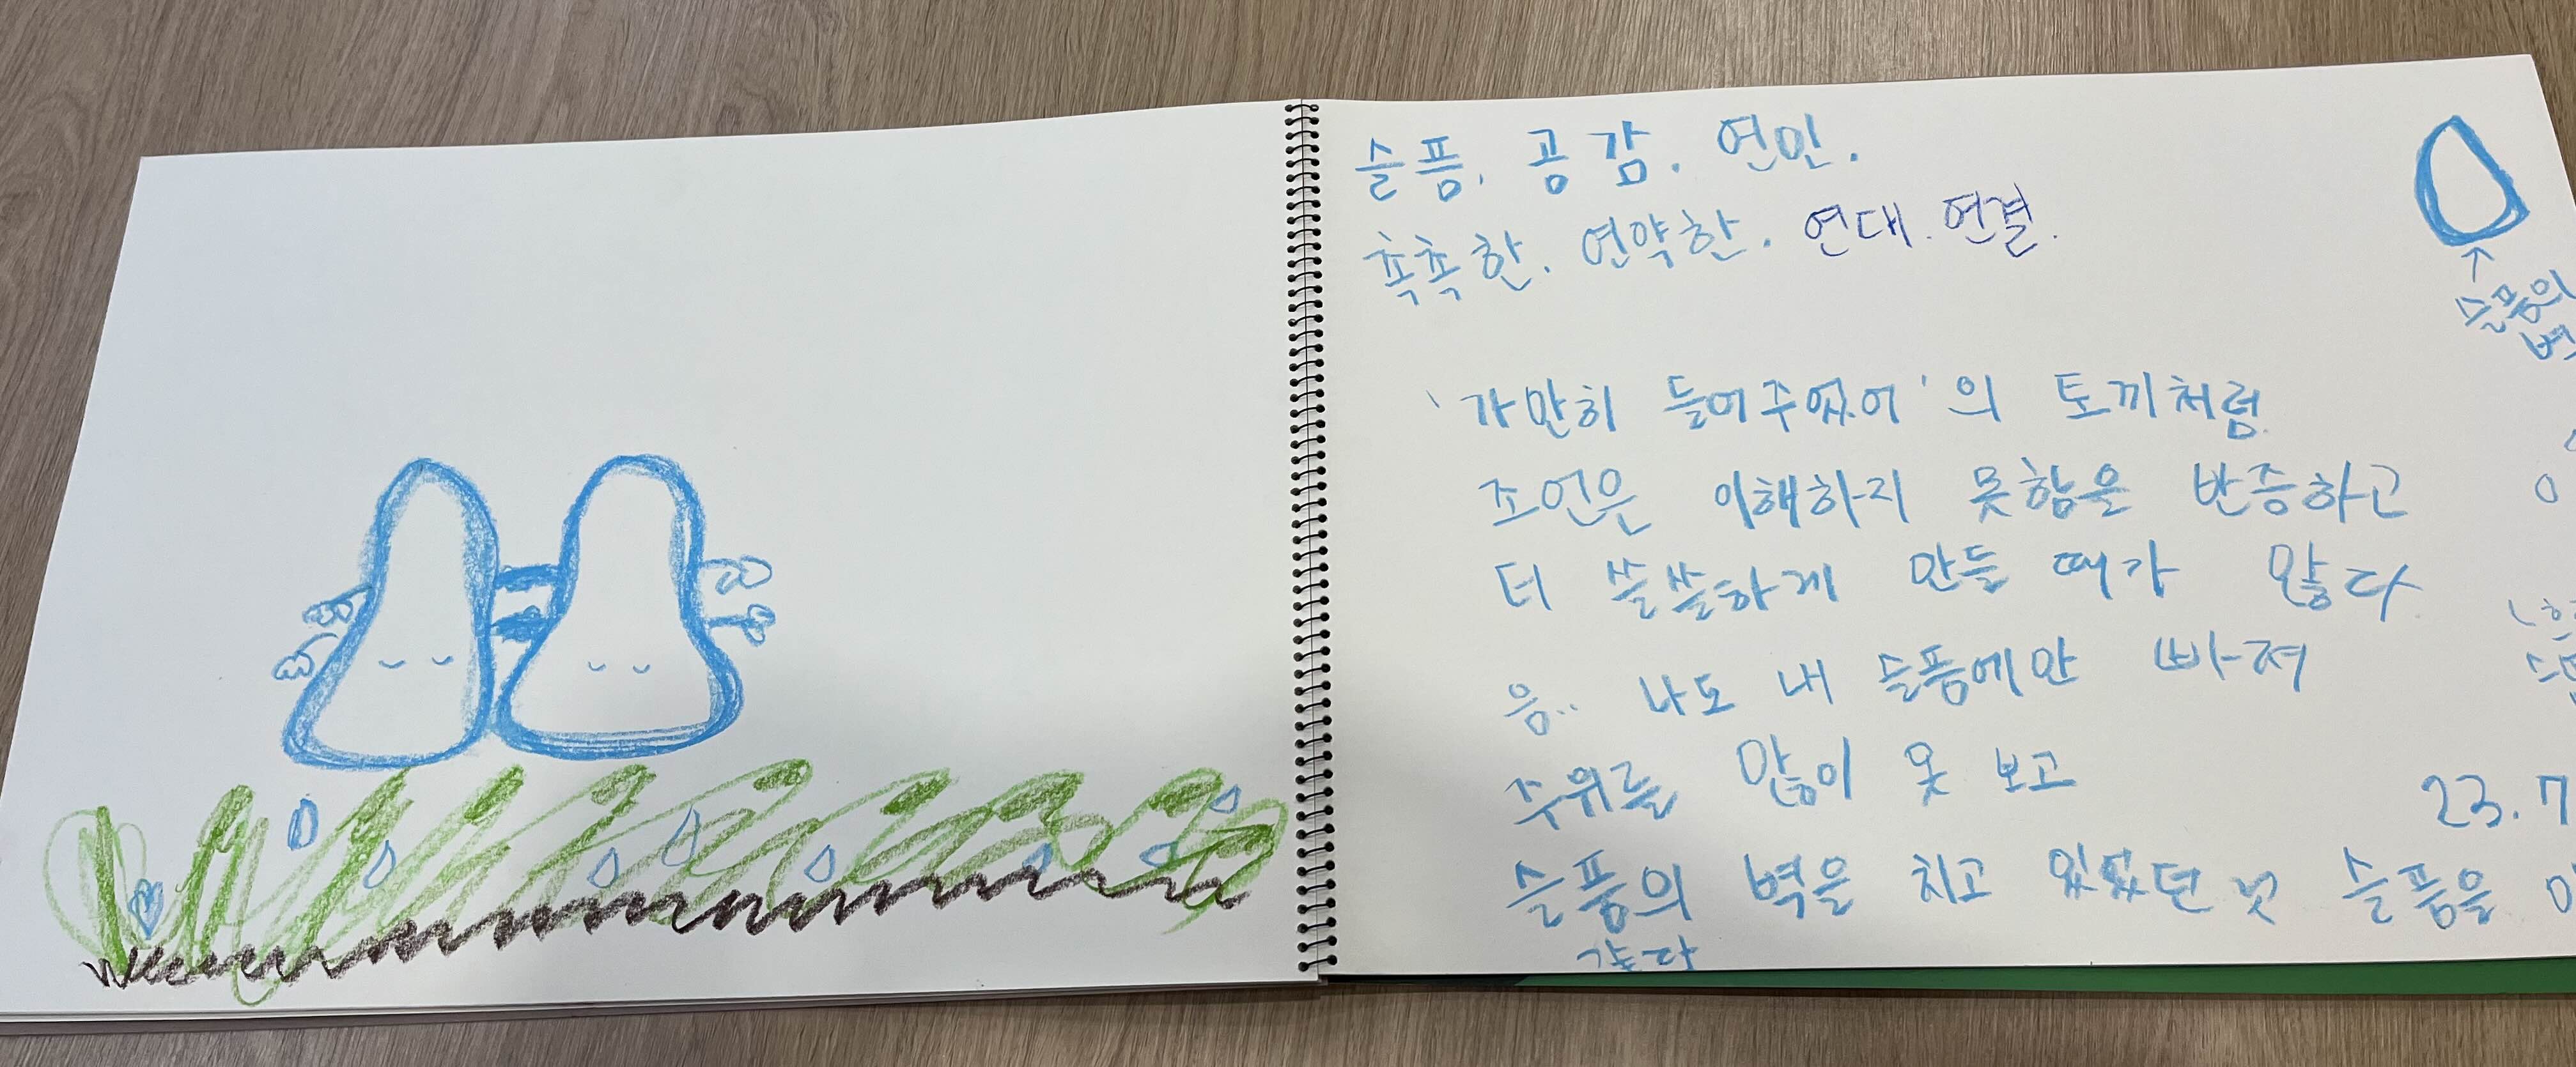 슬픔. 공감. 연민.
촉촉한. 연약한. 연대. 연결.
슬픔의
벽
'가만히 들어주었어'의 토끼처럼
조언은 이해하지 못함을 반증하고
더 쓸쓸하게 만들 때가 많다
음.. 나도 내 슬픔에만 빠져
주위를 많이 못 보고
23.7
슬픔의 벽을 치고 있었던 것 슬픔을
같다